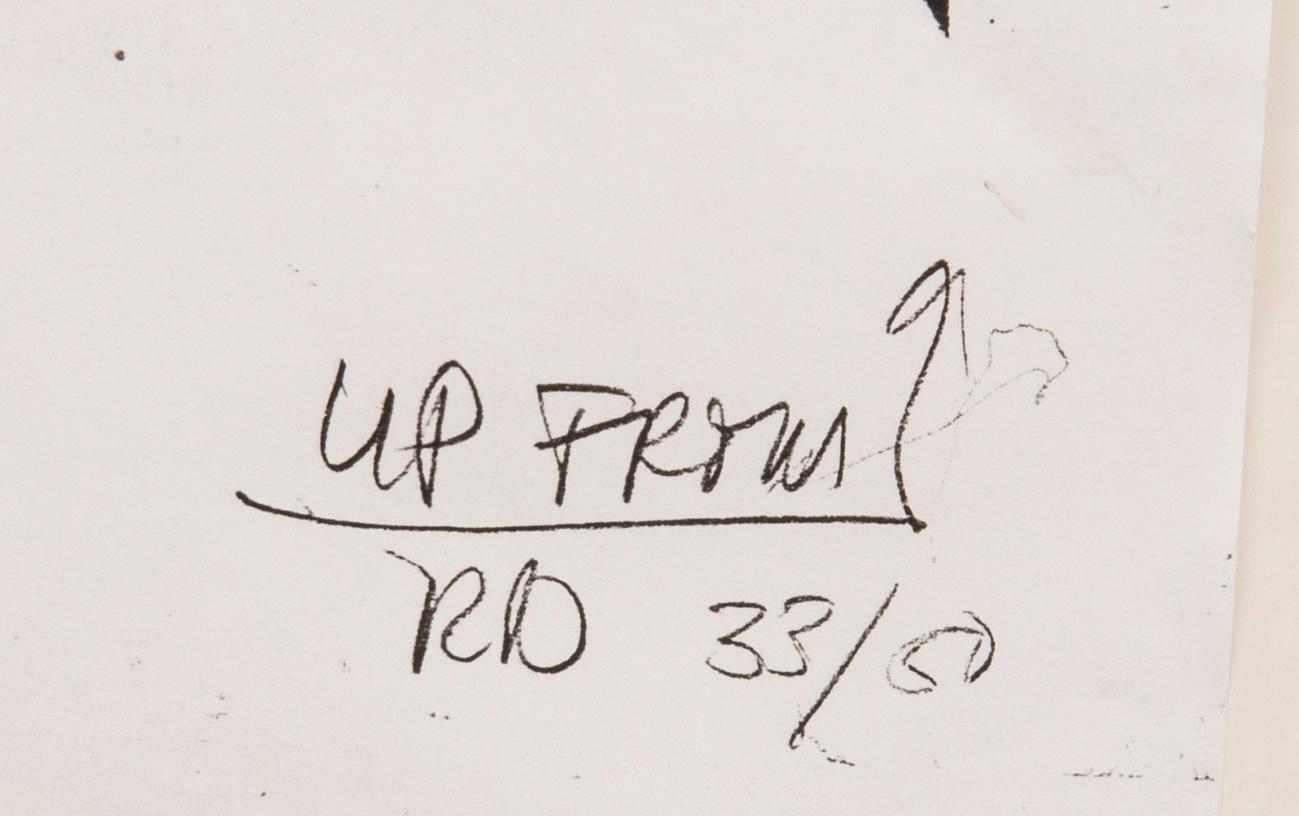 UP FROM
RD 33/50